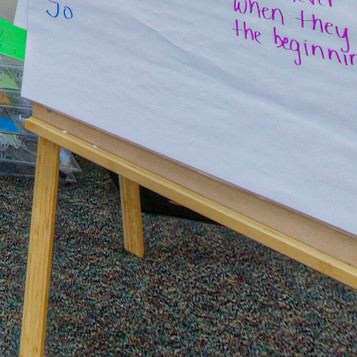 Jo
when they
the beginnin